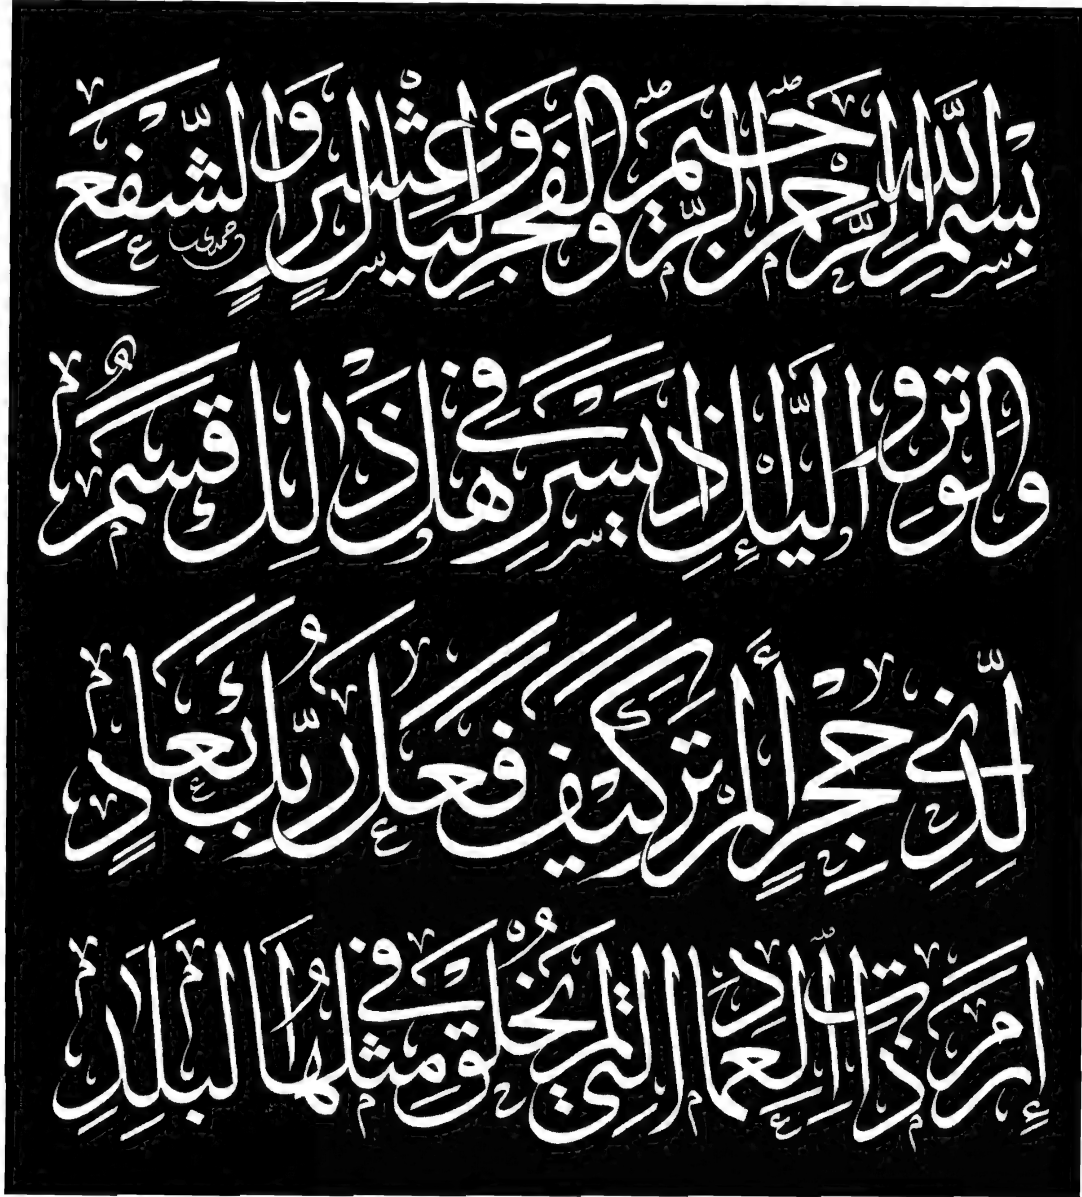 بِسْمِ اللَّهِ الرَّحْمٰنِ الرَّحِيمِ وَالْفَجْرِ وَلَيَالٍ عَشْرٍ وَالشَّفْعِ
وَالْوَتْرِ وَاللَّيْلِ إِذَا يَسْرِ هَلْ فِي ذَٰلِكَ قَسَمٌ
لِّذِي حِجْرٍ أَلَمْ تَرَ كَيْفَ فَعَلَ رَبُّكَ بِعَادٍ
إِرَمَ ذَاتِ الْعِمَادِ الَّتِي لَمْ يُخْلَقْ مِثْلُهَا فِي الْبِلَادِ